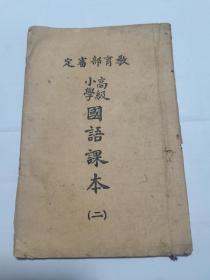 教育部審定
高級
小學
國語課本
(二)